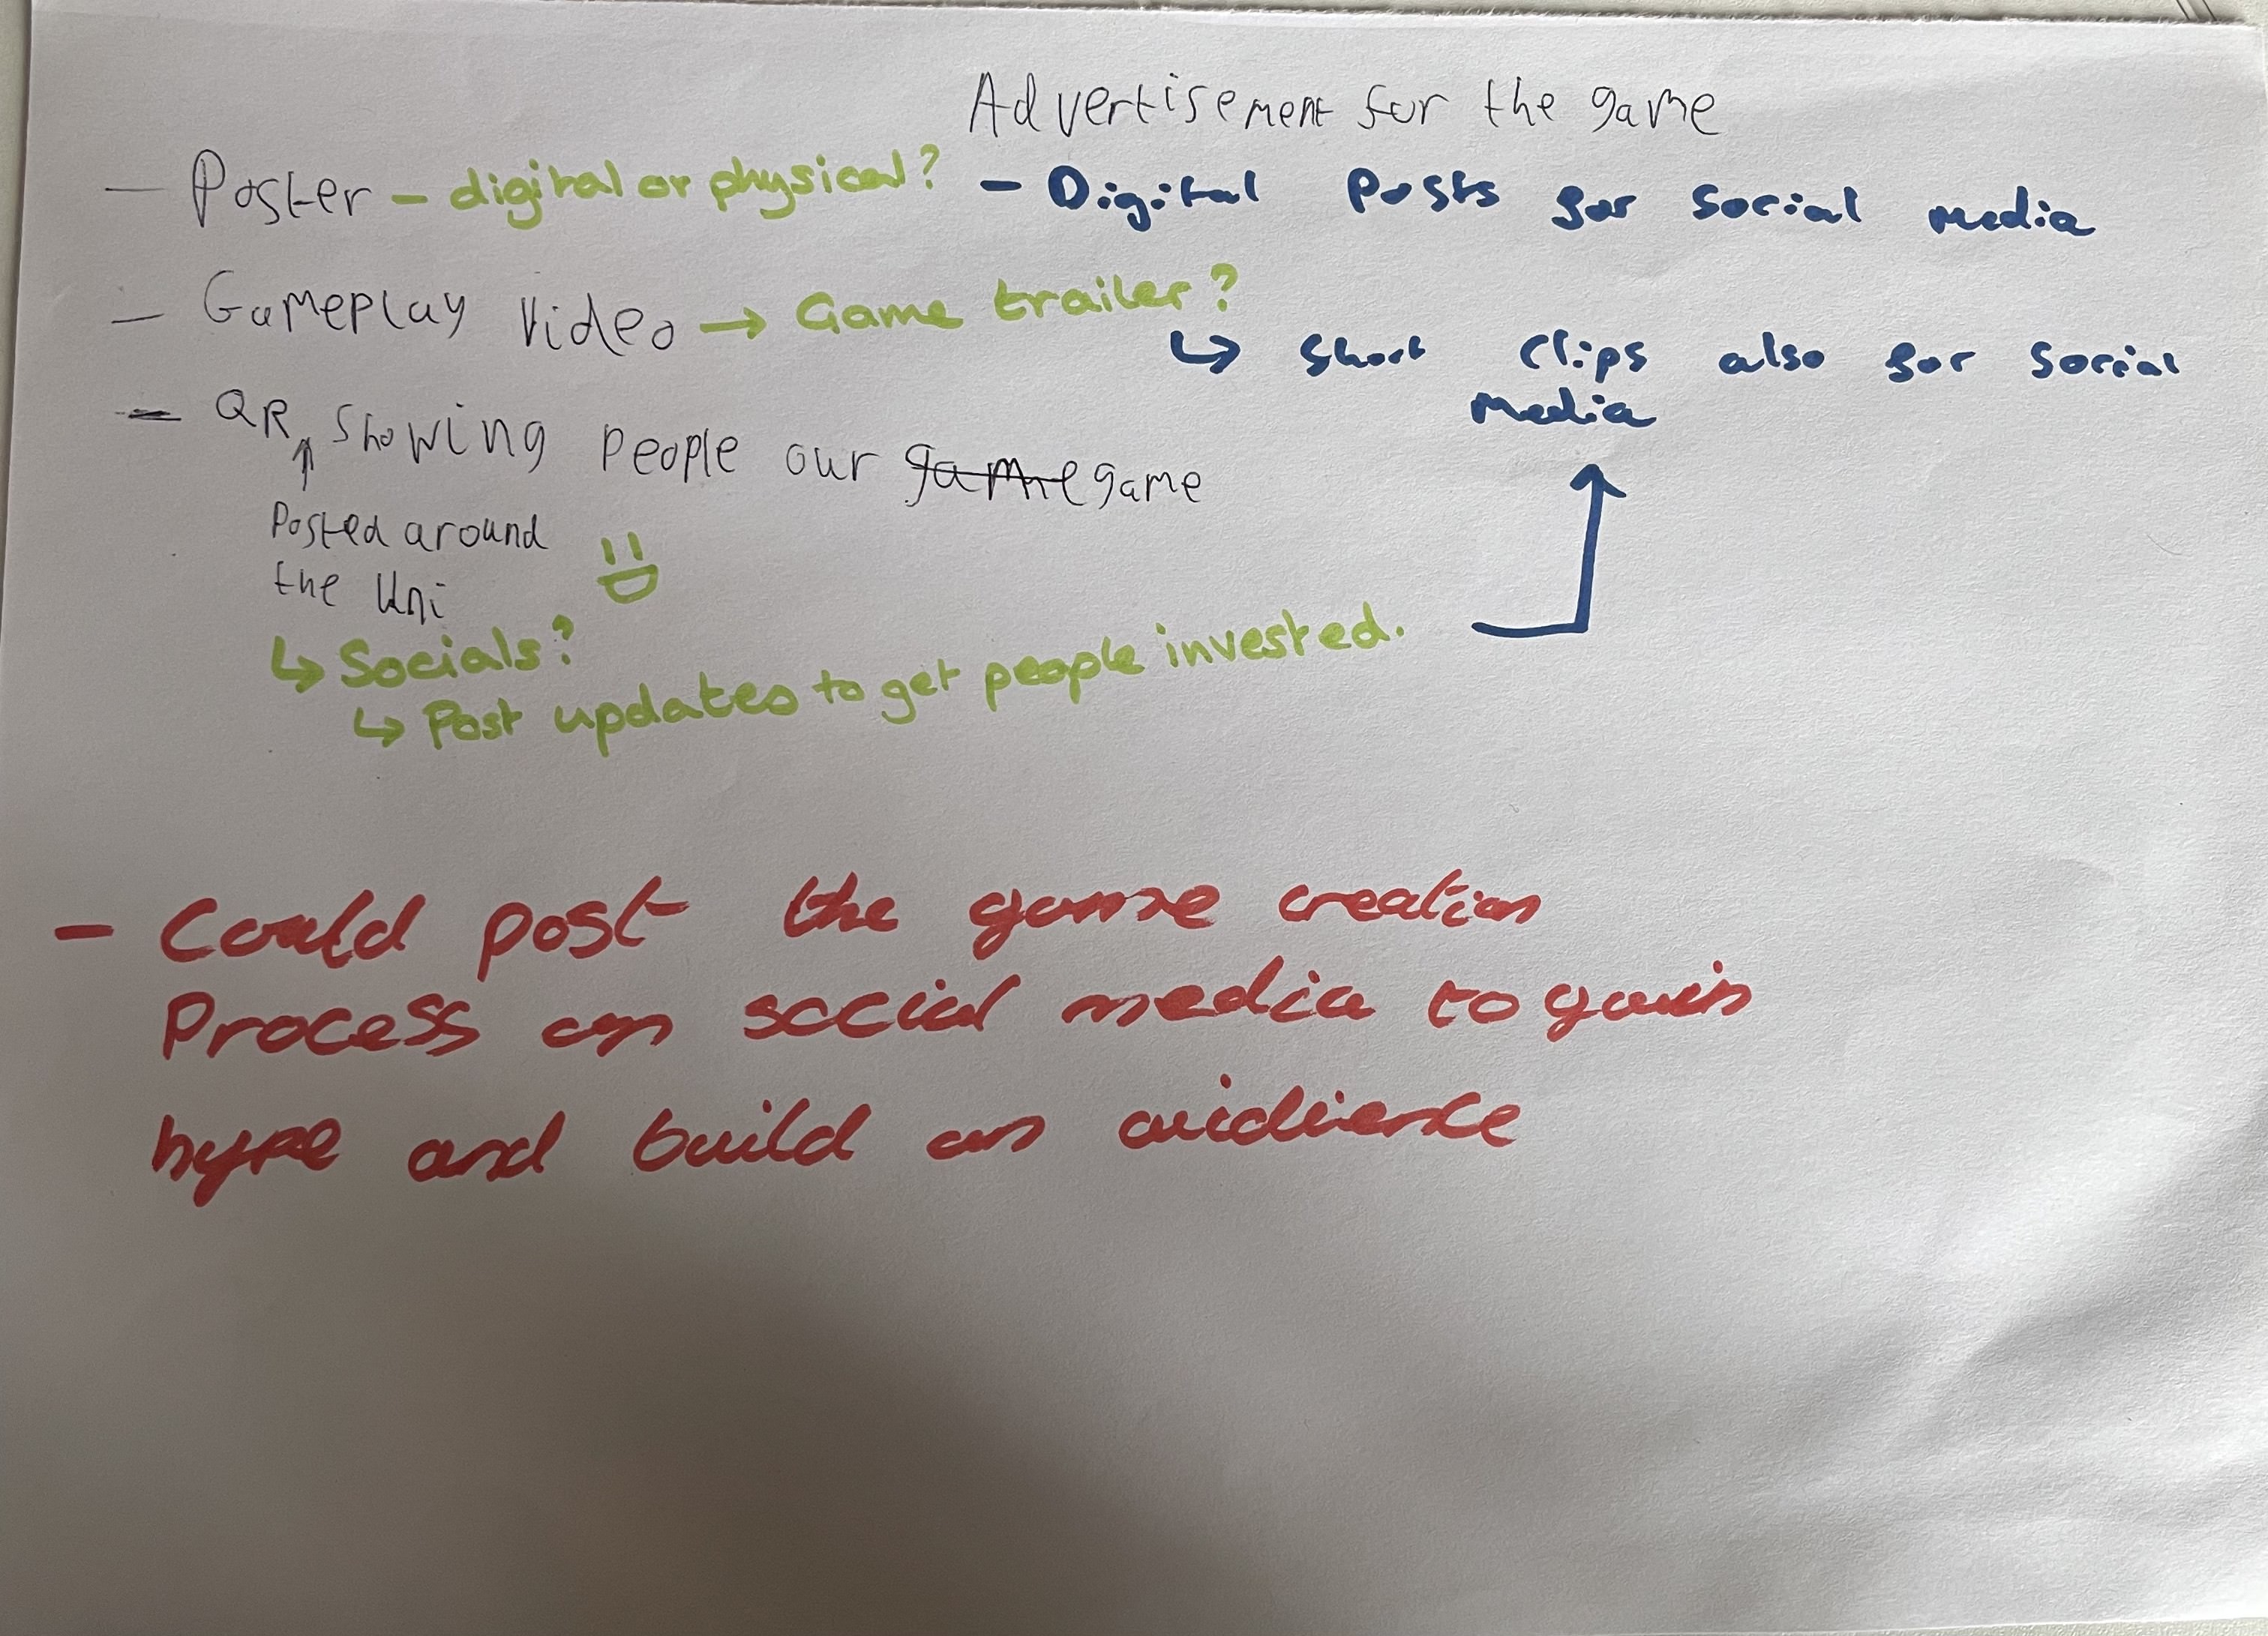 Advertisement for the game
- Poster - digital or physical? - Digital Posts for social media
- Gameplay Video → Game trailer?
↳ Short clips also for social
media
- QR ↑ showing people our game game
Posted around
the Uni
↳ Socials?
↳ Post updates to get people invested.
- Could post the game creation
Process on social media to gain
hype and build an audience